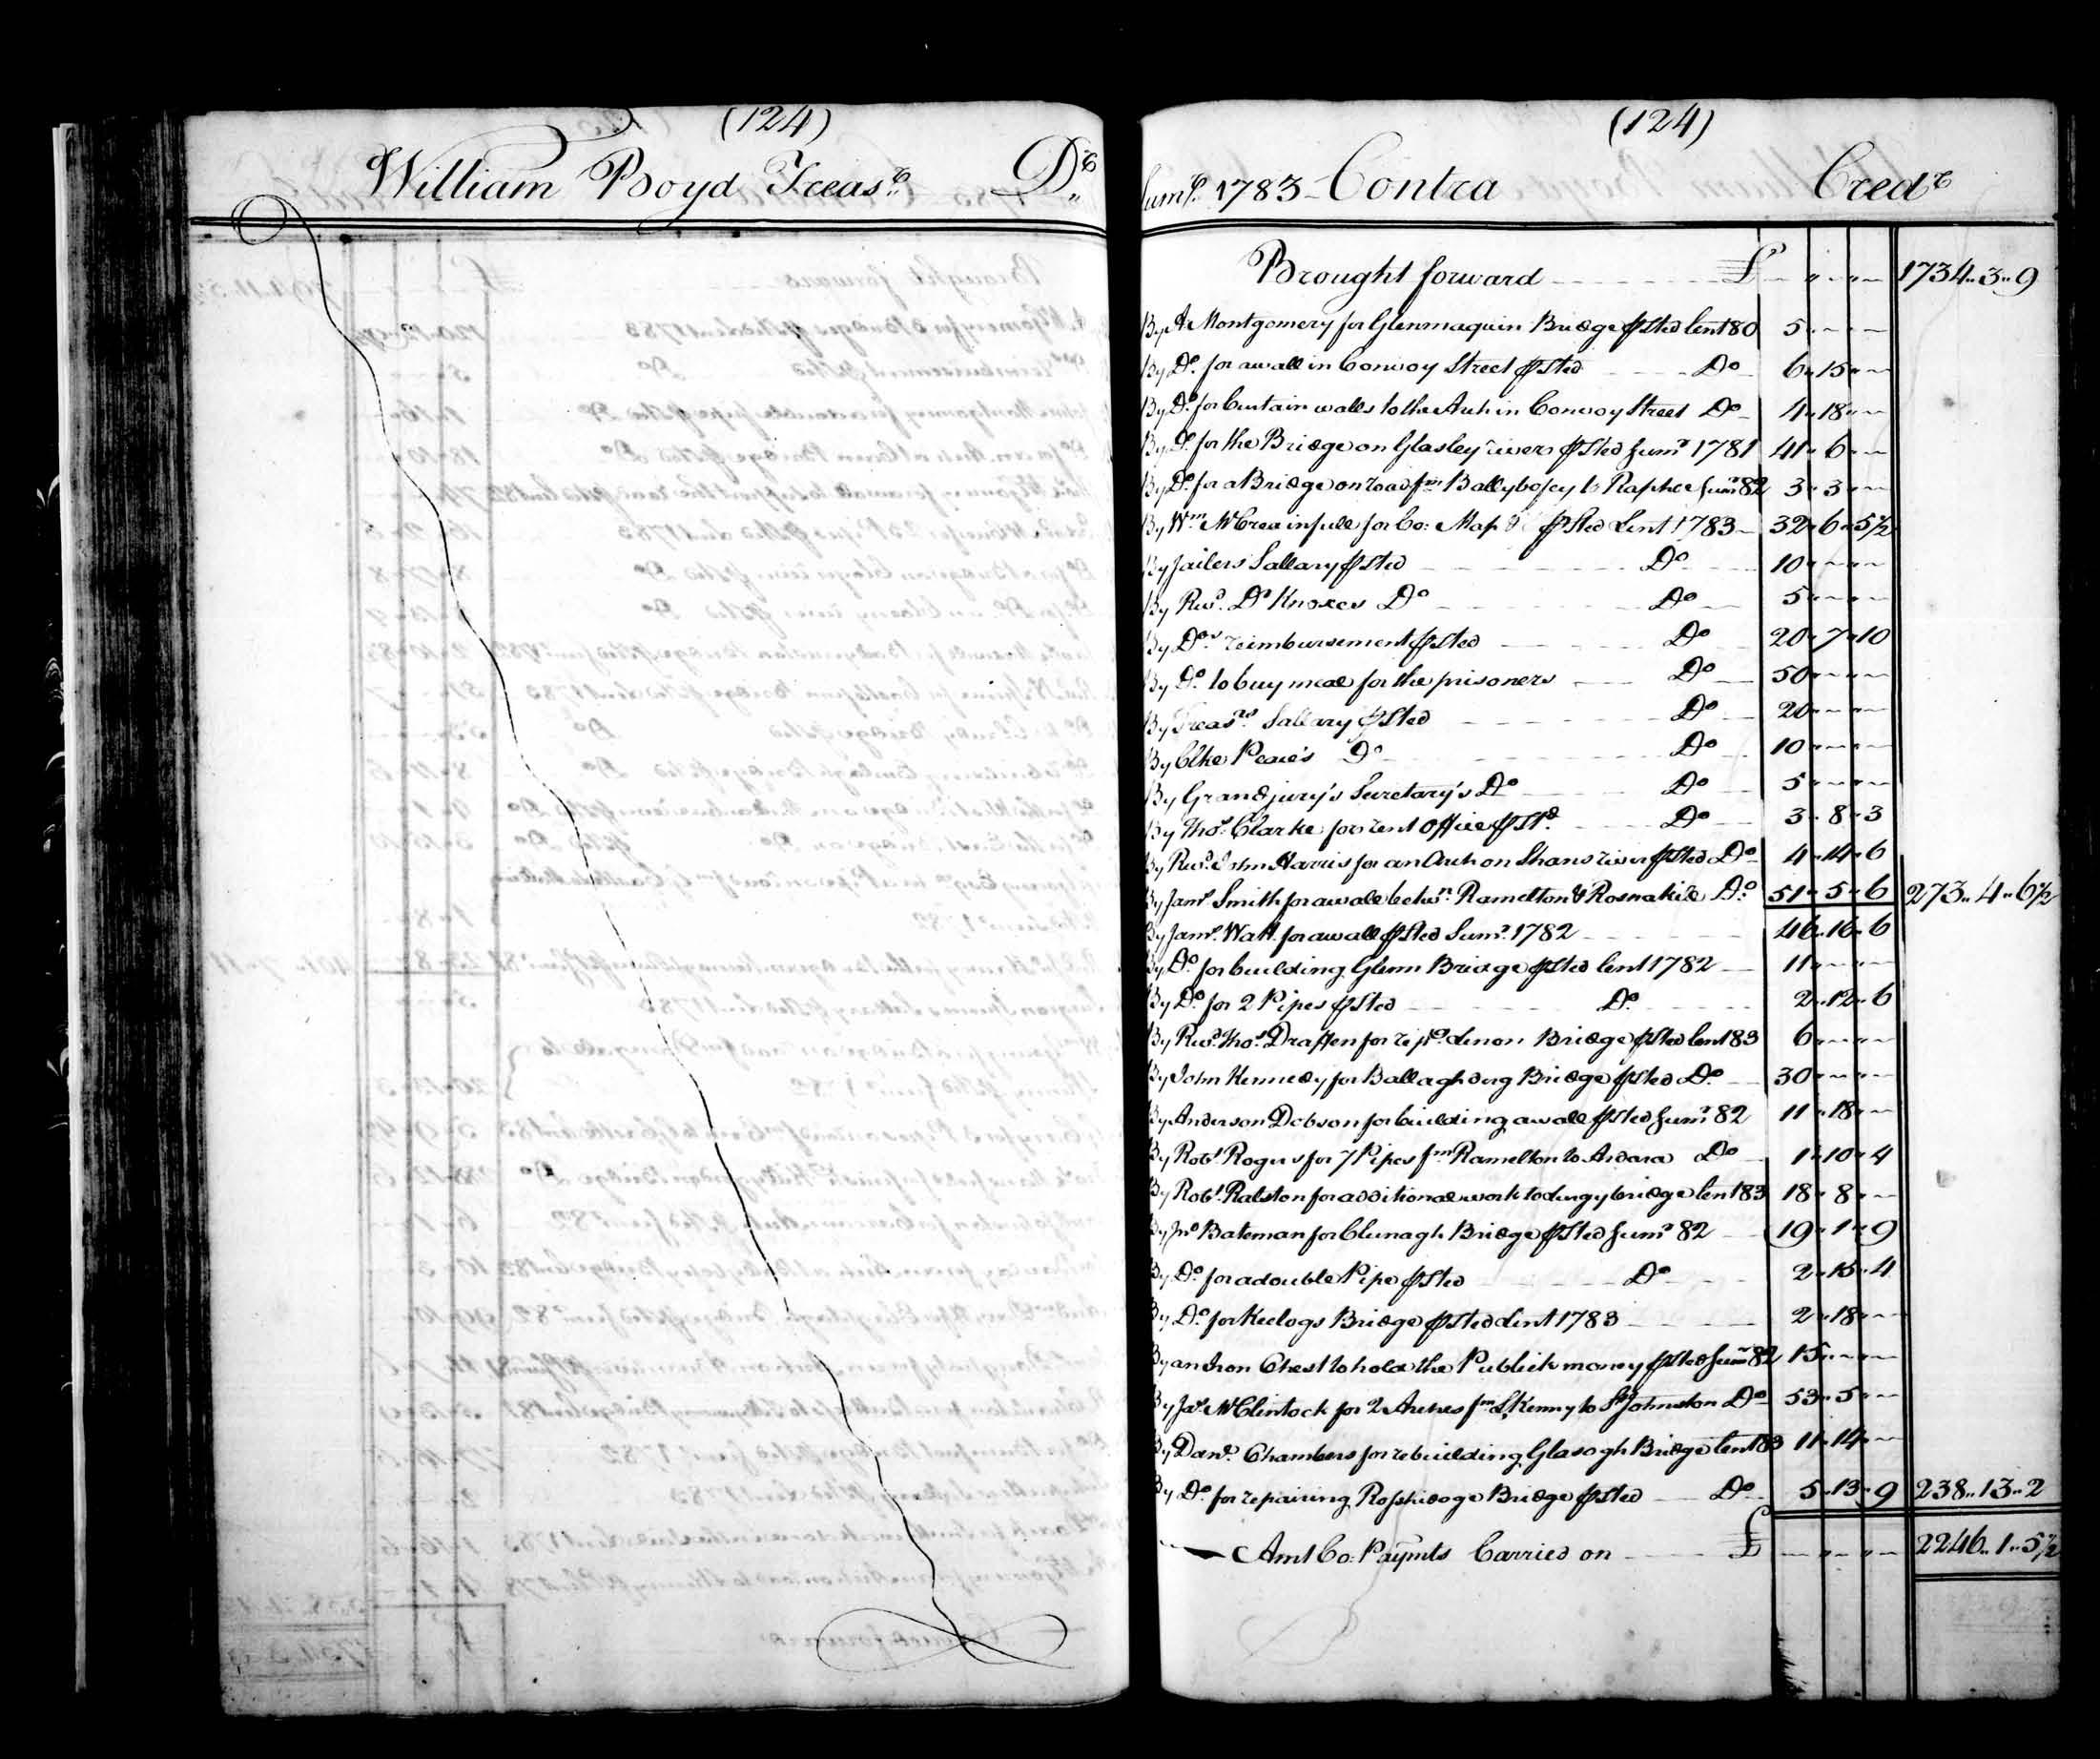 (124)
William Boyd Treasr. Dr.
(124)
Sumr. 1783 - Contra Credr
Brought forward £ 1734 .. 3 .. 9
By A Montgomery for Glenmaquin Bridge ℙ Sted lent 80 5 " - " -
By Do. for a wall in Convoy Street ℙ Sted Do 6 " 15 " -
By Do. for Curtain walls to the Arch in Convoy Street Do 4 " 18 " -
By Do. for the Bridge on Glasley river ℙ Sted Sumr 1781 41 " 6 " -
By Do. for a Bridge on road fm Ballybofey to Raphoe Sumr 82 3 " 3 " -
By Wm. McCrea in full for Co: Map ℙ Sted Lent 1783 32 " 6 " 5½
By Jailers Sallary ℙ Sted Do 10 " - " -
By Revd. Dr Knoxes Do Do 5 " - " -
By Dos reimbursement ℙ Sted Do 20 " 7 " 10
By Do. to buy meal for the prisoners Do 50 " - " -
By Treasrs Sallary ℙ Sted Do 20 " - " -
By Clke Peace's Do Do 10 " - " -
By Grandjury's Secretary's Do Do 5 " - " -
By Thos. Clarke for rent Office ℙ Std. Do 3 " 8 " 3
By Revd. John Harris for an Arch on Shans river ℙ Sted Do 4 " 14 " 6
By Jams. Smith for a wall betwn. Ramelton & Rosnakill Do. 51 " 5 " 6 273 .. 4 .. 6½
By Jams. Watt for a wall ℙ Sted Sumr. 1782 46 " 16 " 6
By Do. for building Glenn Bridge ℙ Sted lent 1782 11 " - " -
By Do. for 2 Pipes ℙ Sted Do. 2 " 12 " 6
By Revd. Thos. Draffen for Bridge ℙ Sted lent 83 6 " - " -
By John Kennedy for Ballaghderg Bridge ℙ Sted Do. 30 " - " -
By Anderson Dobson for building a wall ℙ Sted Sumr 82 11 " 18 " -
By Robt Rogers for 7 Pipes fm Ramelton to Ardara Do 1 " 10 " 4
By Robt. Ralston for additional work to bridge lent 83 18 " 8 " -
By Jno Bateman for Clunagh Bridge ℙ Sted Sumr 82 19 " 1 " 9
By Do. for a double Pipe ℙ Sted Do 2 " 15 " 4
By Do. for Keelogs Bridge ℙ Sted Lent 1783 2 " 18 " -
By an Iron Chest to hold the Publick money ℙ Sted Sumr 82 15 " - " -
By Jas. McClintock for 2 Arches fm L.Kenny to St Johnston Do 53 " 5 " -
By Danl. Chambers for rebuilding Glasogh Bridge lent 83 11 " 14 " -
By Do. for repairing Bridge ℙ Sted Do 5 " 13 " 9 238 .. 13 .. 2
Amt Co: Paymts Carried on £ 2246 .. 1 .. 5½